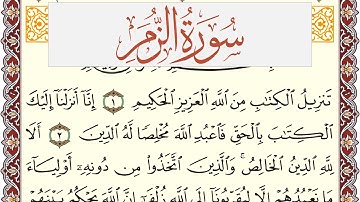 سُورَةُ الزُّمَر
تَنزِيلُ ٱلْكِتَٰبِ مِنَ ٱللَّهِ ٱلْعَزِيزِ ٱلْحَكِيمِ ١ إِنَّآ أَنزَلْنَآ إِلَيْكَ
ٱلْكِتَٰبَ بِٱلْحَقِّ فَٱعْبُدِ ٱللَّهَ مُخْلِصًا لَّهُ ٱلدِّينَ ٢ أَلَا
لِلَّهِ ٱلدِّينُ ٱلْخَالِصُ ۚ وَٱلَّذِينَ ٱتَّخَذُوا۟ مِن دُونِهِۦٓ أَوْلِيَآءَ
مَا نَعْبُدُهُمْ إِلَّا لِيُقَرِّبُونَآ إِلَى ٱللَّهِ زُلْفَىٰٓ إِنَّ ٱللَّهَ يَحْكُمُ بَيْنَهُمْ